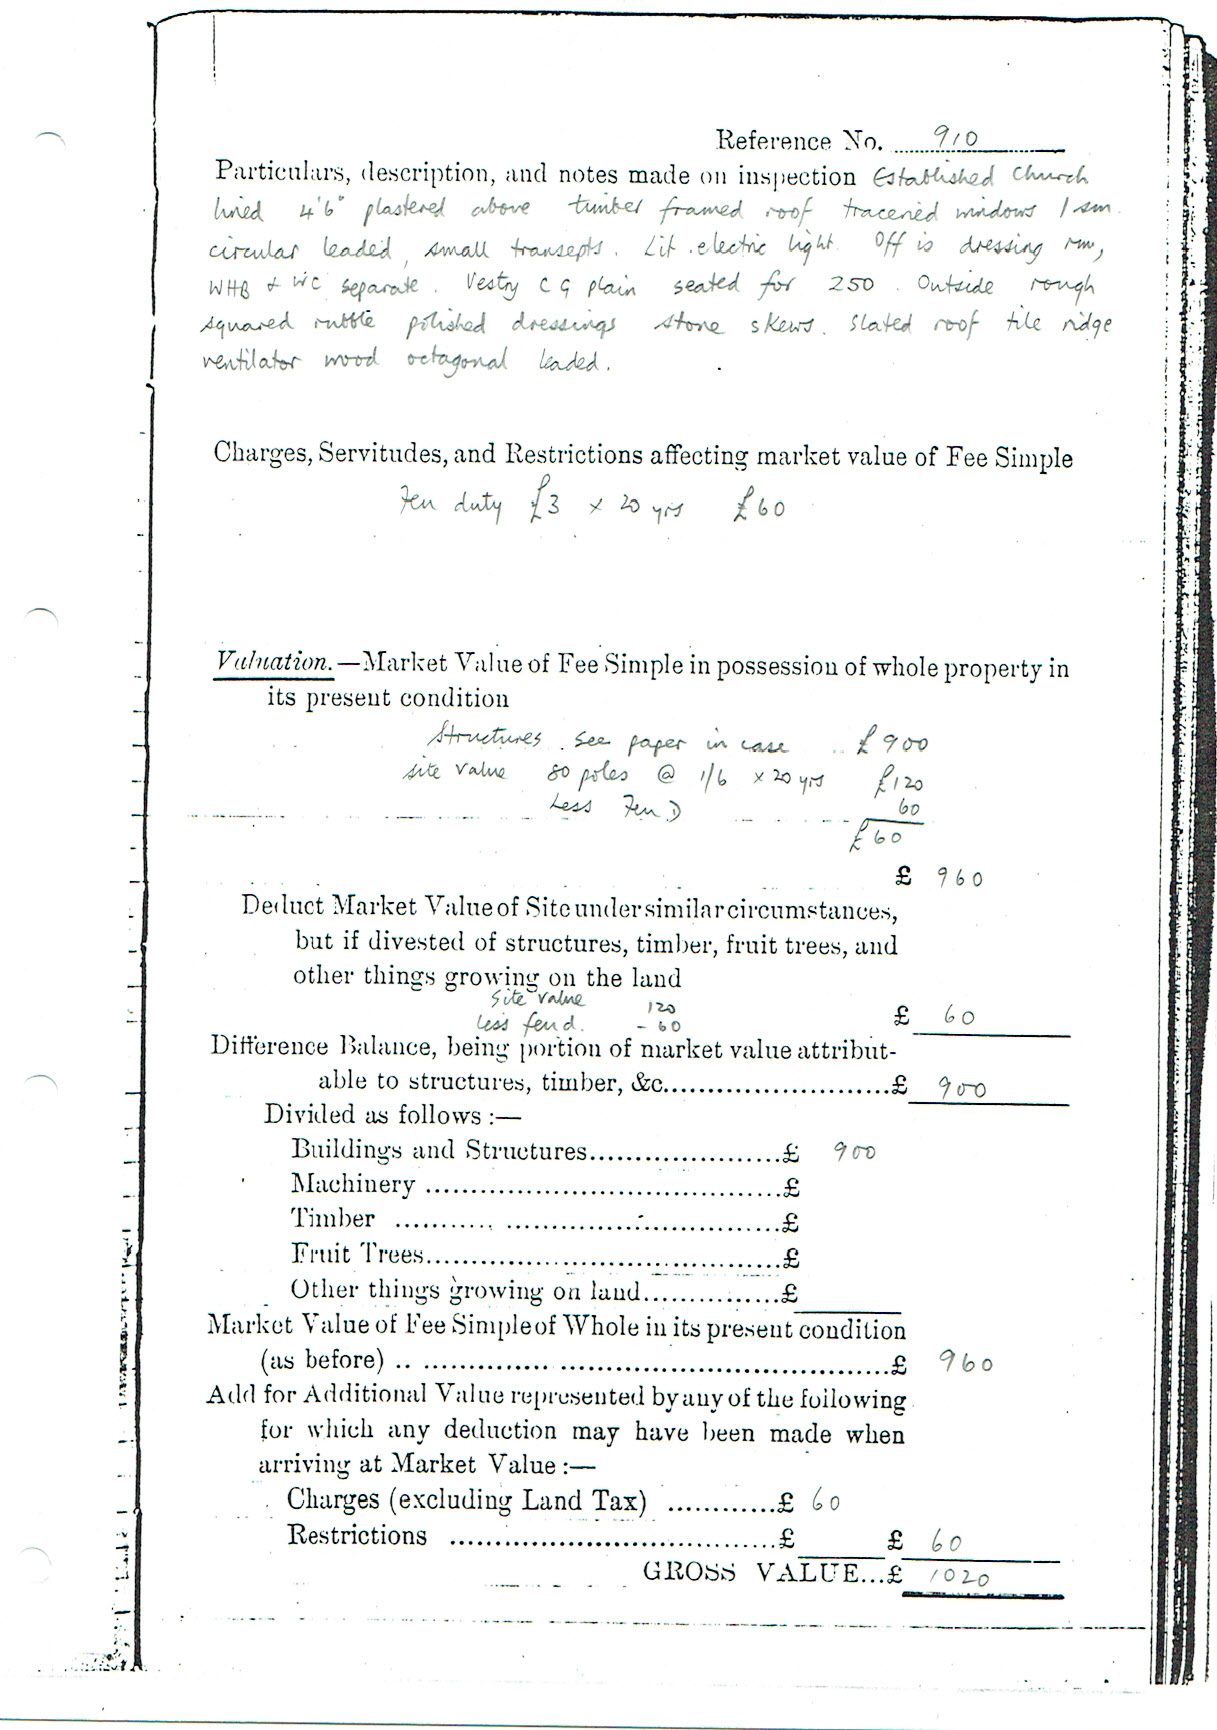 Reference No. 910
Particulars, description, and notes made on inspection Established Church
lined 4'6" plastered above timber framed roof traceried windows 1 sm.
circular leaded, small transepts. Lit electric light. Off is dressing rm,
WHB & WC separate. Vestry C G plain seated for 250. Outside rough
squared rubble polished dressings stone skews. Slated roof tile ridge
ventilator wood octagonal leaded.
Charges, Servitudes, and Restrictions affecting market value of Fee Simple
Feu duty £3 x 20 yrs £60
Valuation.—Market Value of Fee Simple in possession of whole property in
its present condition
Structures. See paper in case £900
site value 80 poles @ 1/6 x 20 yrs £120
Less Feu D 60
£60
£ 960
Deduct Market Value of Site under similar circumstances,
but if divested of structures, timber, fruit trees, and
other things growing on the land
Site value 120
less feu d. - 60 £ 60
Difference Balance, being portion of market value attribut-
able to structures, timber, &c. £ 900
Divided as follows :—
Buildings and Structures £ 900
Machinery £
Timber £
Fruit Trees £
Other things growing on land £
Market Value of Fee Simple of Whole in its present condition
(as before) £ 960
Add for Additional Value represented by any of the following
for which any deduction may have been made when
arriving at Market Value :—
Charges (excluding Land Tax) £ 60
Restrictions £ £ 60
GROSS VALUE...£ 1020